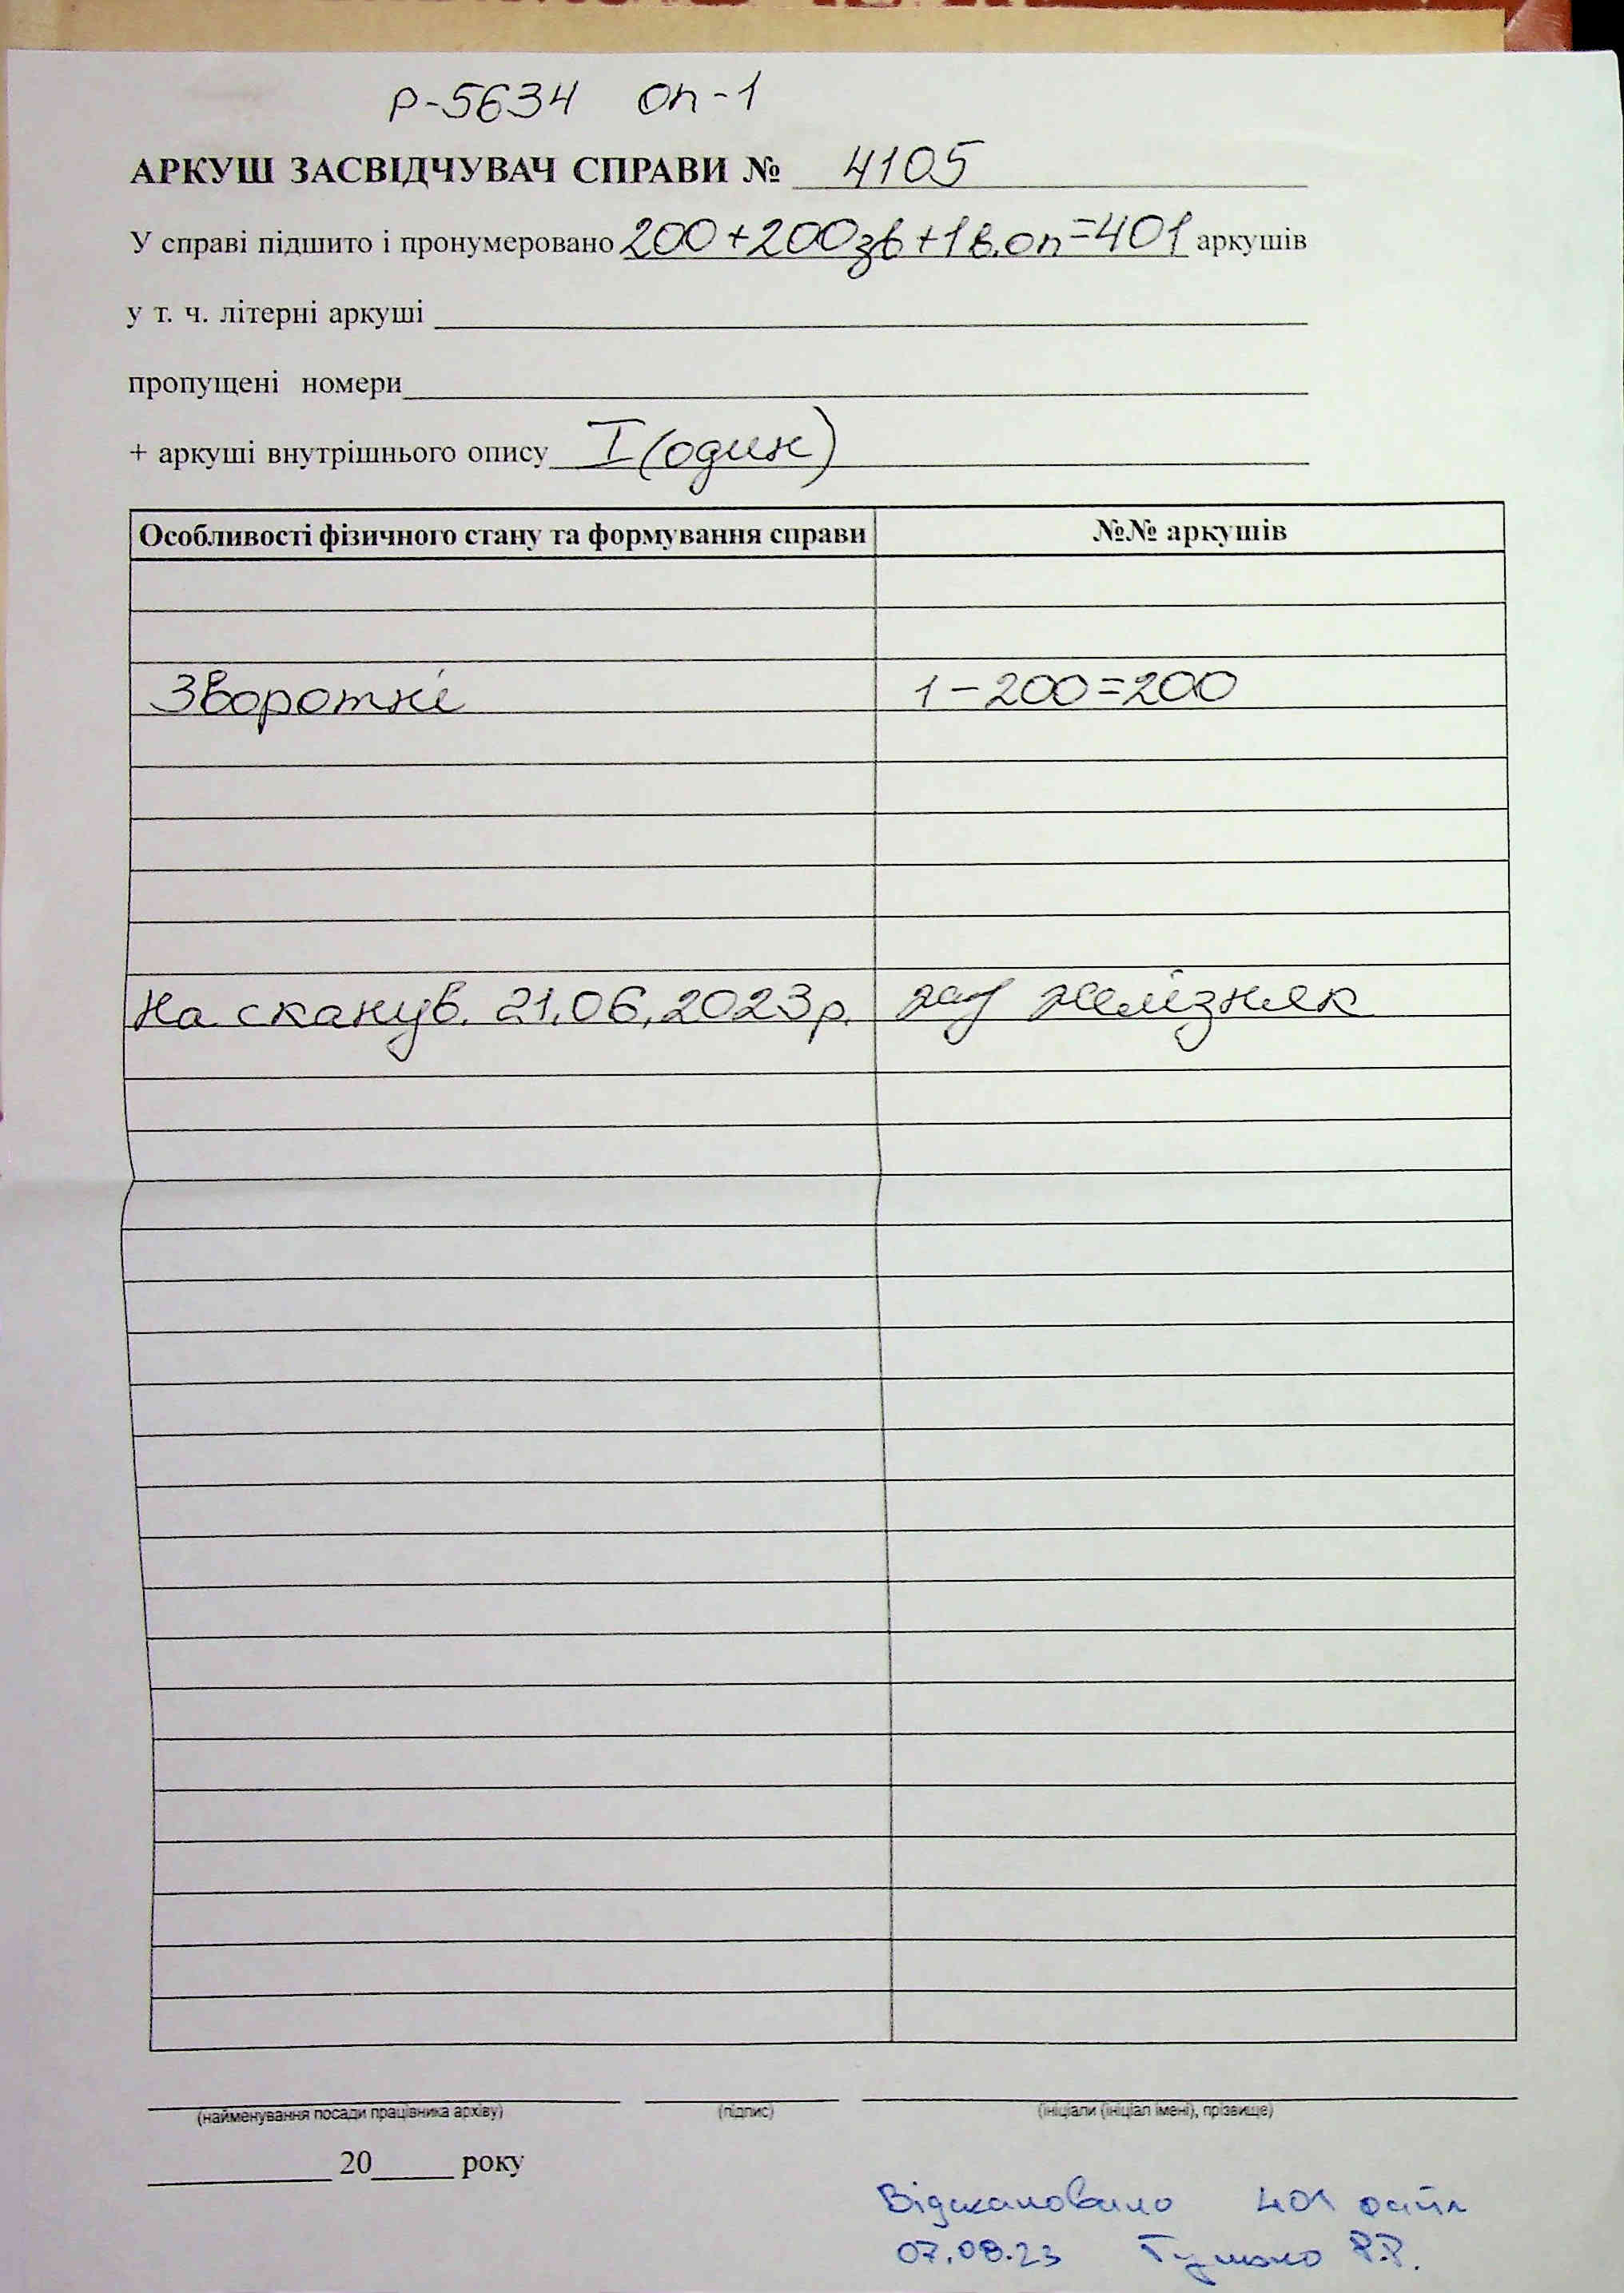 Р-5634 оп-1
АРКУШ ЗАСВІДЧУВАЧ СПРАВИ № 4105
У справі підшито і пронумеровано 200+200зв+1в.оп=401 аркушів
у т. ч. літерні аркуші
пропущені номери
+ аркуші внутрішнього опису I (один)
Особливості фізичного стану та формування справи №№ аркушів
Зворотні 1-200=200
На сканув. 21.06.2023р. Желізняк
(найменування посади працівника архіву) (підпис) (ініціали (ініціал імені), прізвище)
20 року
Відскановано 401 файл
07.08.23 Р.Р.